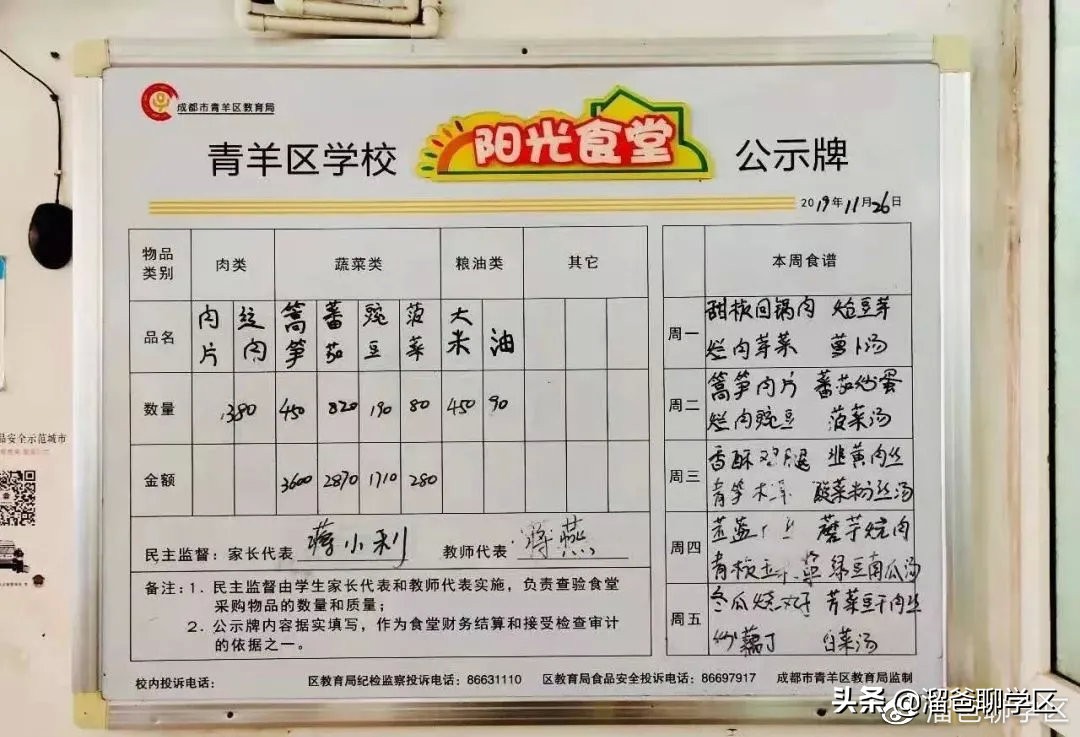 成都市青羊区教育局
青羊区学校 阳光食堂 公示牌
2019年11月26日
物品类别 肉类 蔬菜类 粮油类 其它
品名 肉片 莴笋 蕃茄 豌豆 菠菜 大米 油
数量 380 450 820 190 80 450 90
金额 3600 2870 1710 280
民主监督：家长代表 蒋小利 教师代表 蒋燕
备注：1. 民主监督由学生家长代表和教师代表实施，负责查验食堂
采购物品的数量和质量；
2. 公示牌内容据实填写，作为食堂财务结算和接受检查审计
的依据之一。
本周食谱
周一 甜椒回锅肉 烩豆芽
烂肉芽菜 萝卜汤
周二 莴笋肉片 蕃茄炒蛋
烂肉豌豆 菠菜汤
周三 香酥鸡腿 韭黄肉丝
青笋木耳 酸菜粉丝汤
周四 魔芋烧肉
绿豆南瓜汤
周五 冬瓜烧 芹菜豆干肉丝
炒藕丁 白菜汤
校内投诉电话： 区教育局纪检监察投诉电话：86631110 区教育局食品安全投诉电话：86697917 成都市青羊区教育局监制
品安全示范城市
头条 @溜爸聊学区
溜爸聊学区